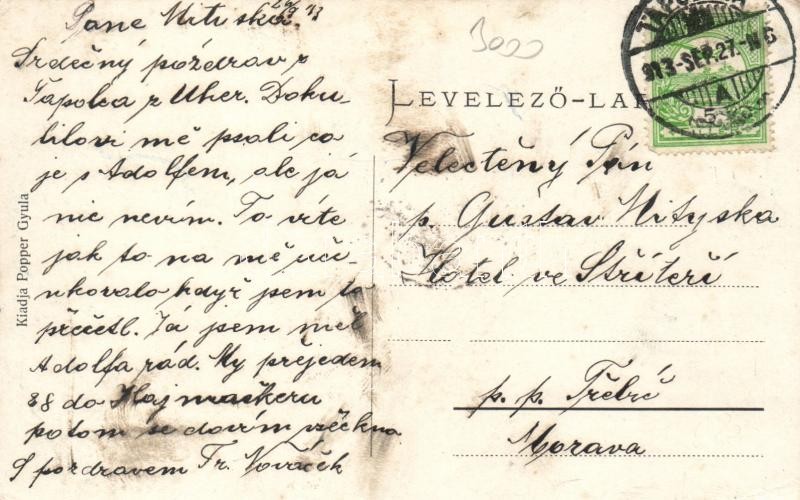 Pane Mitiska. 29/9 13
Srdečný pozdrav z
Tapolca z Uher. Doku-
lilovi mě psali co
je s Adolfem, ale já
nic nevím. To víte
jak to na mě úči-
nkovalo když jsem to
přečetl. Já jsem měl
Adolfa rád. My přejedem
28 do Hajmaškeru
potom se dovím všechno
S pozdravem Fr. Nováček
Kiadja Popper Gyula
3000
LEVELEZŐ-LA
913-SEP.27-
Velectěný Pán
p. Gustav Mityska
Hotel ve Stříteří
p. p. Třebíč
Morava